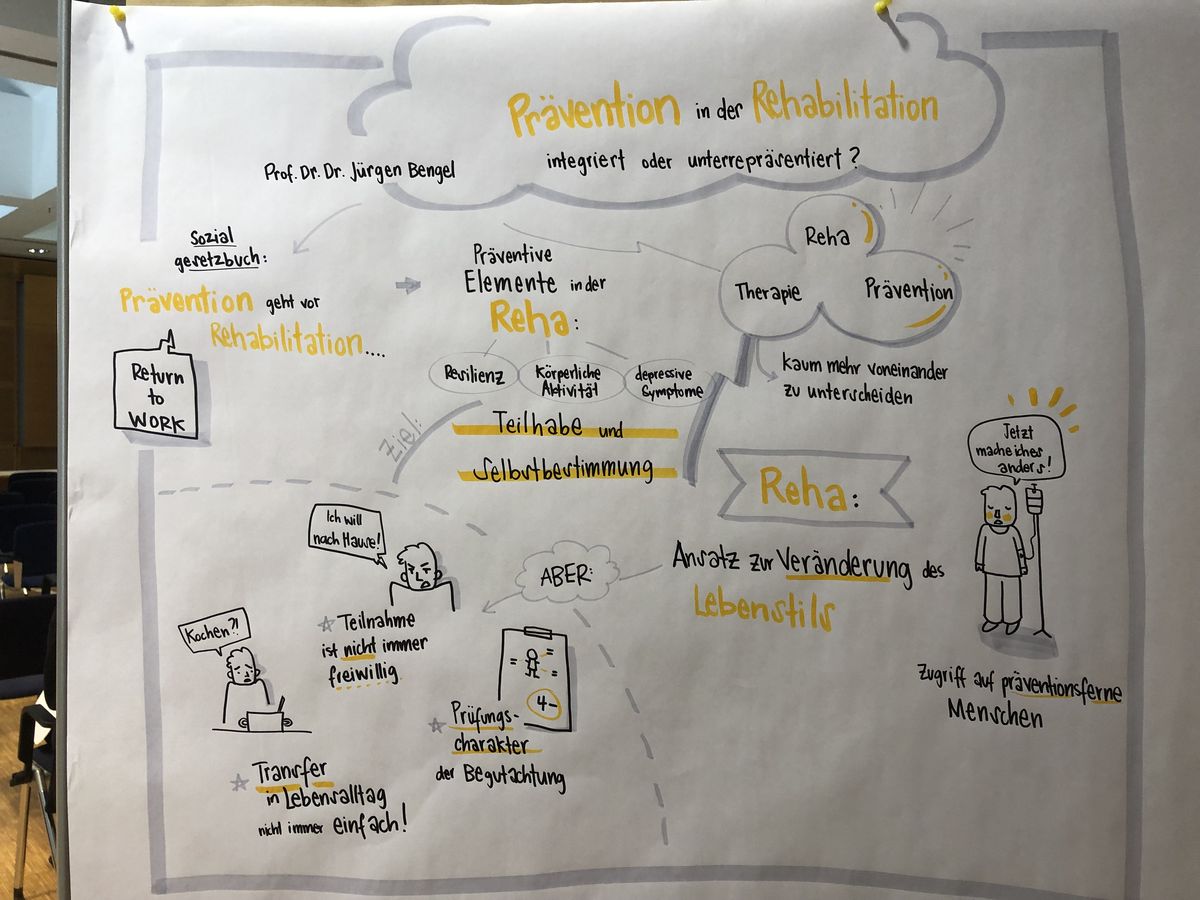 Prävention in der Rehabilitation
integriert oder unterrepräsentiert?
Prof. Dr. Dr. Jürgen Bengel
Sozial
gesetzbuch:
Prävention geht vor
Rehabilitation....
Return
to
WORK
Präventive
Elemente in der
Reha:
Resilienz
Körperliche
Aktivität
depressive
Symptome
Ziel:
Teilhabe und
Selbstbestimmung
Reha
Therapie
Prävention
kaum mehr voneinander
zu unterscheiden
Reha:
Ansatz zur Veränderung des
Lebensstils
Jetzt
mache ich es
anders!
Zugriff auf präventionsferne
Menschen
ABER:
Ich will
nach Hause!
Teilnahme
ist nicht immer
freiwillig
4-
Prüfungs-
charakter
der Begutachtung
Kochen?!
Transfer
in Lebensalltag
nicht immer einfach!